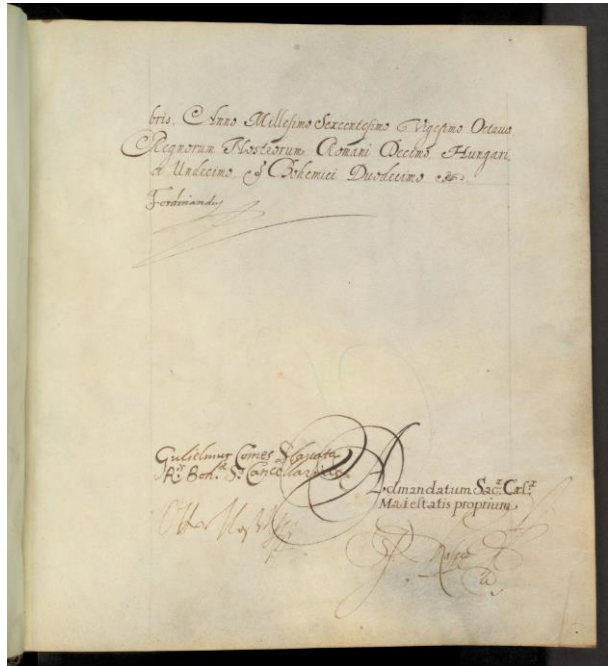 bris. Anno Millesimo Sexcentesimo Vigesimo Octavo
Regnorum Nostrorum Romani Decimo, Hungari,
ci Undecimo, Bohemici Duodecimo
Ferdinandus
Gulielmus Comes Slavata
R: Boh: S: Cancellarius
Admandatum Sac: Cæs:
Maiestatis proprium